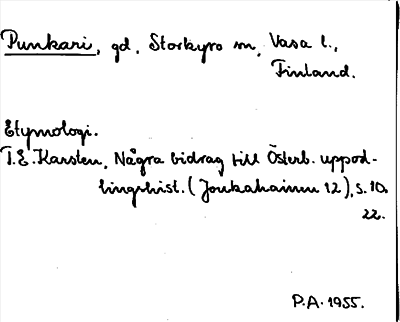 Punkari, gd, Storkyro sn, Vasa l.,
Finland.
Etymologi.
T.E. Karsten, Några bidrag till Österb. uppod-
lingshist. (Joukahainen 12), s. 10.
22.
P.A. 1955.